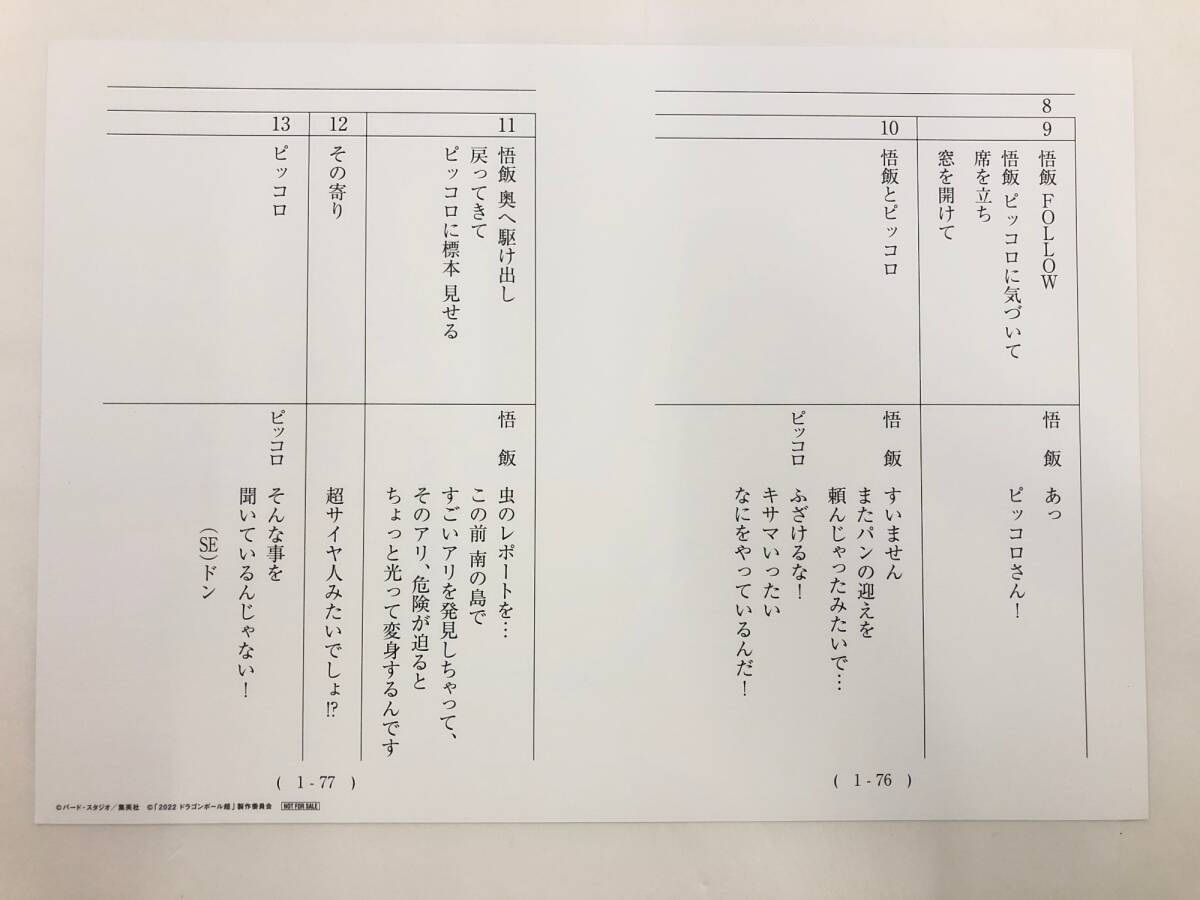 8
9
悟飯 FOLLOW
悟飯 ピッコロに気づいて
席を立ち
窓を開けて
悟 飯 あっ
ピッコロさん！
10
悟飯とピッコロ
悟 飯 すいません
またパンの迎えを
頼んじゃったみたいで…
ピッコロ ふざけるな！
キサマいったい
なにをやっているんだ！
( 1 - 76 )
11
悟飯 奥へ駆け出し
戻ってきて
ピッコロに標本 見せる
悟 飯 虫のレポートを…
この前 南の島で
すごいアリを発見しちゃって、
そのアリ、危険が迫ると
ちょっと光って変身するんです
12
その寄り
超サイヤ人みたいでしょ!?
13
ピッコロ
ピッコロ そんな事を
聞いているんじゃない！
（SE）ドン
( 1 - 77 )
©バード・スタジオ／集英社 ©「2022 ドラゴンボール超」製作委員会 NOT FOR SALE